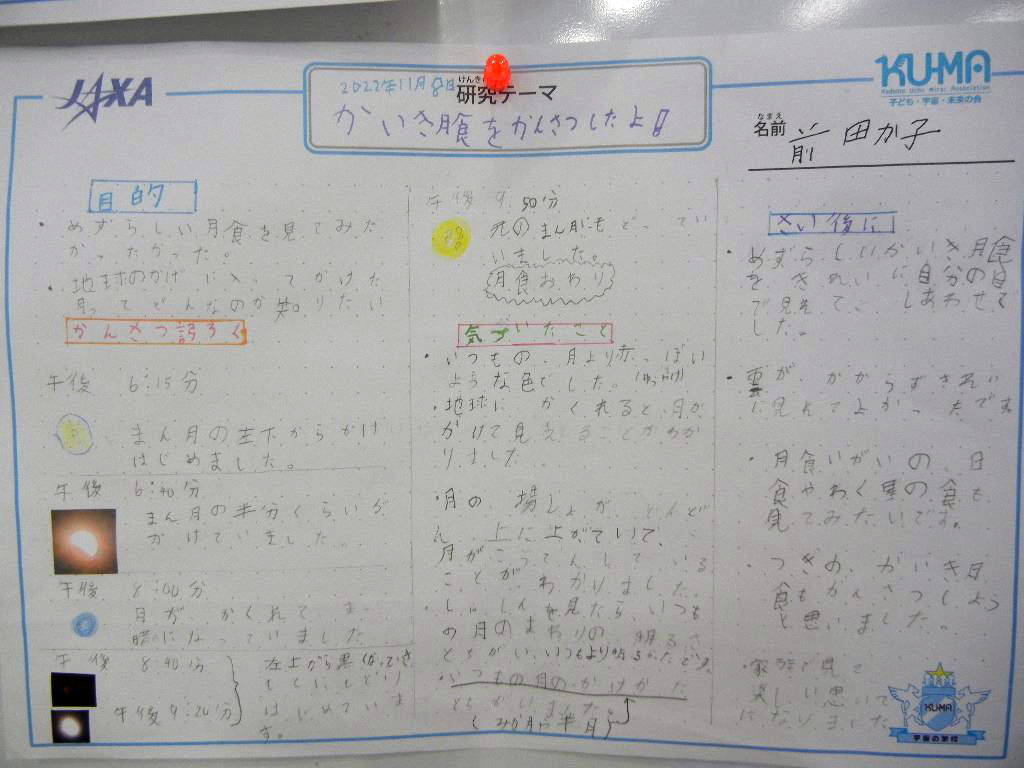 JAXA
2022年11月8日
けんきゅう
研究テーマ
かいき月食をかんさつしたよ!!
KU-MA
Kodomo Uchu Mirai Association
子ども・宇宙・未来の会
なまえ
名前 前田か子
目的
・めずらしい月食を見てみた
かったかった。
・地球のかげに入ってかけた
月ってどんなのか知りたい
かんさつ記ろく
午後 6:15分
まん月の左下からかけ
はじめました。
午後 6:40分
まん月の半分くらいが
かけていました。
午後 8:00分
月が、かくれて、ま
暗になっていました
午後 8:40分
午後 9:20分
左上から
もとにもどり
はじめていま
す。
午後 9.50分
元のまん月にもどってい
いました。
月食おわり
気づいたこと
・いつもの、月より赤っぽい
ような色でした。
・地球に、かくれると、月が
かけて見えることがわか
りました
・月の、場しょが、どんど
ん、上に上がていて、
月がこうてんしている
ことが、わかりました。
・しゃしんを見たら、いつも
の月のまわりの、明るさ
とちがい、いつもより明るかったです。
・いつもの月のかけかた
とちがいました。
(みか月に半月)
さい後に
・めずらしいかいき月食
を、きれいに自分の目
で見れて、しあわせで
した。
・雲が、かからずきれい
に見れてよかったです
・月食いがいの、日
食やわく星の食も
見てみたいです。
・つぎの、かいき月
食もかんさつしよう
と思いました。
・家族で見て
楽しい思いで
になりました
KU-MA
宇宙の学校